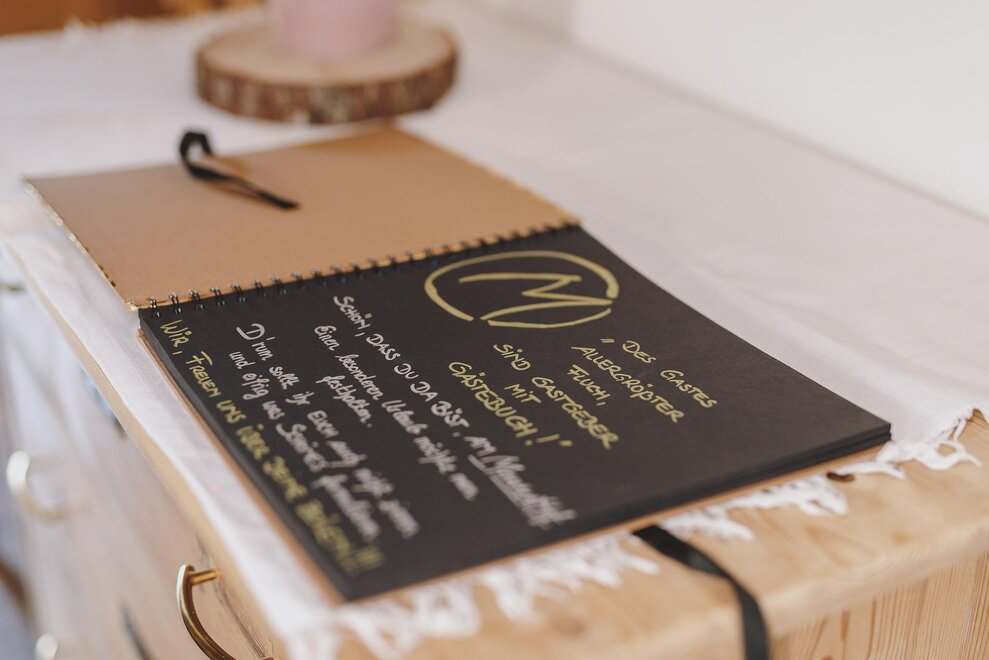 M
„Des Gastes
allergrößter
Fluch,
sind Gastgeber
mit
Gästebuch!"
Schön, dass du da bist, am
Einen besonderen Urlaub möchte man
festhalten.
D'rum sollt ihr Euch auch nicht zieren
und eifrig was
Wir, freuen uns über deine